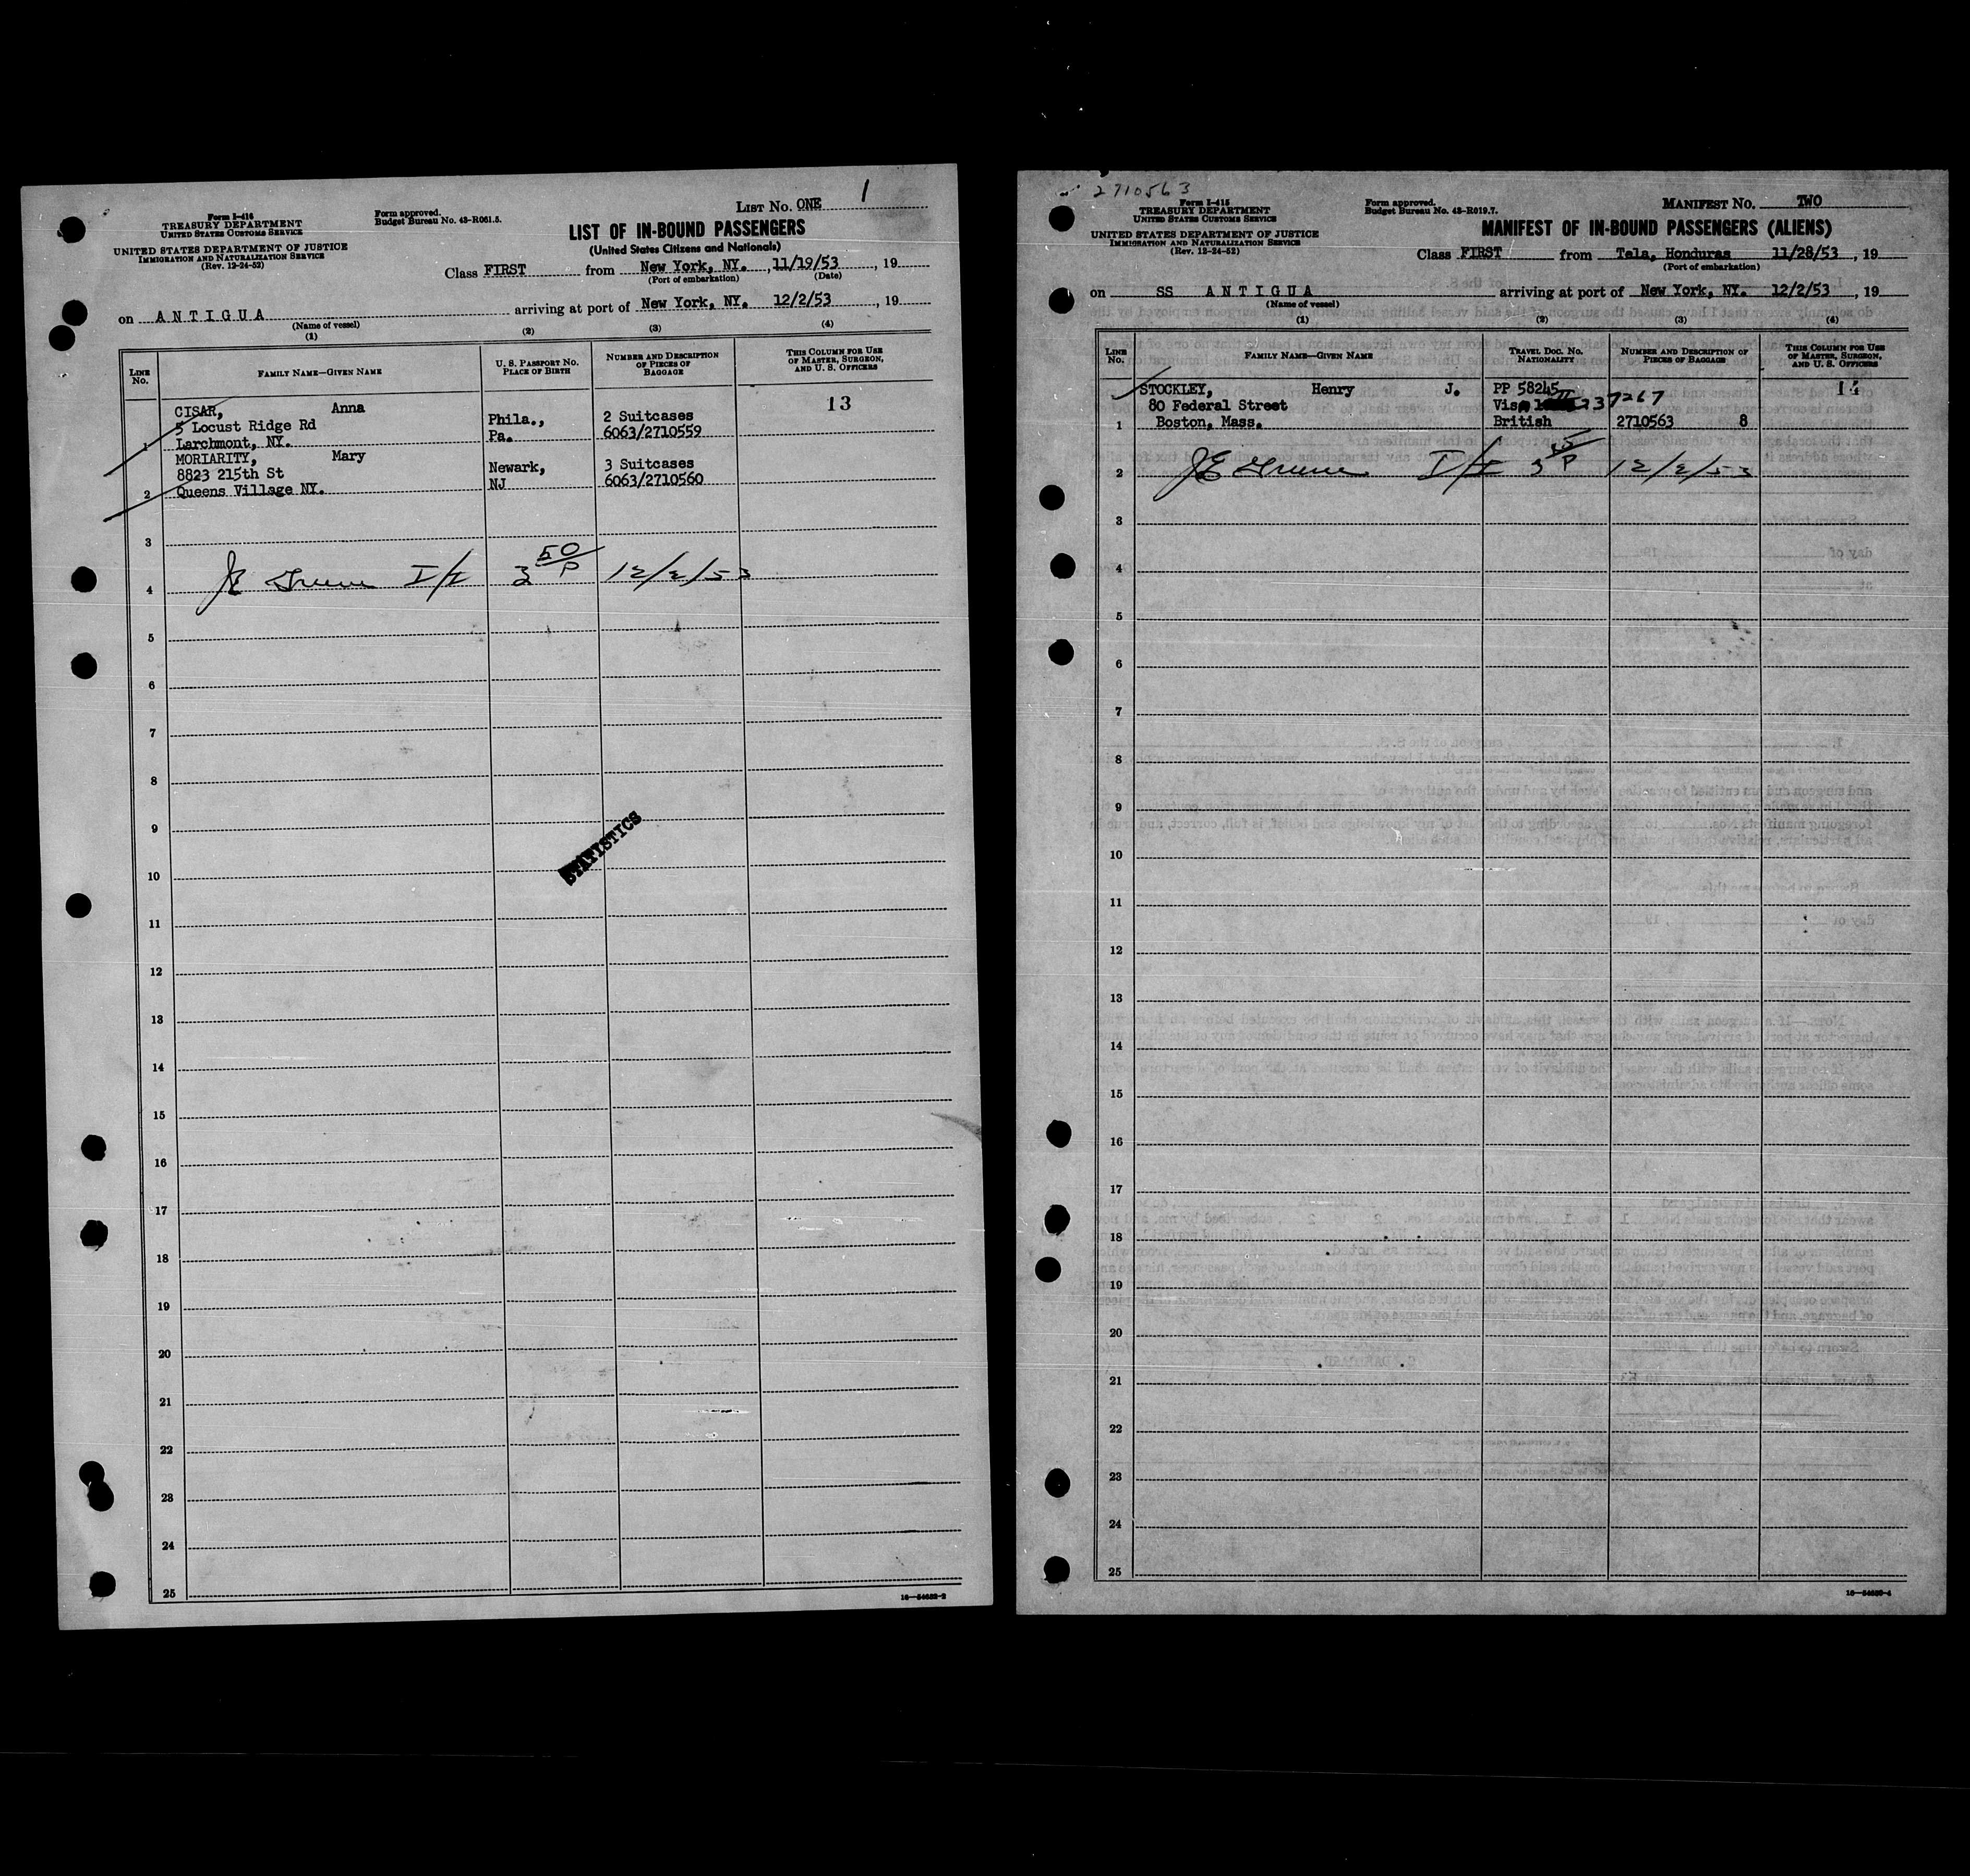 LIST NO. ONE 1
Form I-416
TREASURY DEPARTMENT
UNITED STATES CUSTOMS SERVICE
Form approved.
Budget Bureau No. 43-R061.5.
LIST OF IN-BOUND PASSENGERS
(United States Citizens and Nationals)
UNITED STATES DEPARTMENT OF JUSTICE
IMMIGRATION AND NATURALIZATION SERVICE
(Rev. 12-24-52)
Class FIRST from New York, NY. , 11/19/53 , 19
(Port of embarkation) (Date)
on ANTIGUA arriving at port of New York, NY. 12/2/53 , 19
(Name of vessel)
(1) (2) (3) (4)
LINE NO.
FAMILY NAME—GIVEN NAME
U. S. PASSPORT NO.
PLACE OF BIRTH
NUMBER AND DESCRIPTION
OF PIECES OF
BAGGAGE
THIS COLUMN FOR USE
OF MASTER, SURGEON,
AND U. S. OFFICERS
13
CISAR, Anna
5 Locust Ridge Rd Phila., 2 Suitcases
1 Larchmont, NY. Pa. 6063/2710559
MORIARITY, Mary
8823 215th St Newark, 3 Suitcases
2 Queens Village NY. NJ 6063/2710560
3
4 3 50/P 12/2/53
5
6
7
8
9
STATISTICS
10
11
12
13
14
15
16
17
18
19
20
21
22
23
24
25
16—54632-2
2710563
Form I-415
TREASURY DEPARTMENT
UNITED STATES CUSTOMS SERVICE
Form approved.
Budget Bureau No. 43-R019.7.
MANIFEST NO. TWO
MANIFEST OF IN-BOUND PASSENGERS (ALIENS)
UNITED STATES DEPARTMENT OF JUSTICE
IMMIGRATION AND NATURALIZATION SERVICE
(Rev. 12-24-52)
Class FIRST from Tela, Honduras 11/28/53 , 19
(Port of embarkation)
on SS ANTIGUA arriving at port of New York, NY. 12/2/53 , 19
(Name of vessel)
(1) (2) (3) (4)
LINE NO.
FAMILY NAME—GIVEN NAME
TRAVEL DOC. NO.
NATIONALITY
NUMBER AND DESCRIPTION OF
PIECES OF BAGGAGE
THIS COLUMN FOR USE
OF MASTER, SURGEON,
AND U. S. OFFICERS
STOCKLEY, Henry J. PP 58245 14
80 Federal Street Visa 237267
1 Boston, Mass. British 2710563 8
2 12/2/53
3
4
5
6
7
8
9
10
11
12
13
14
15
16
17
18
19
20
21
22
23
24
25